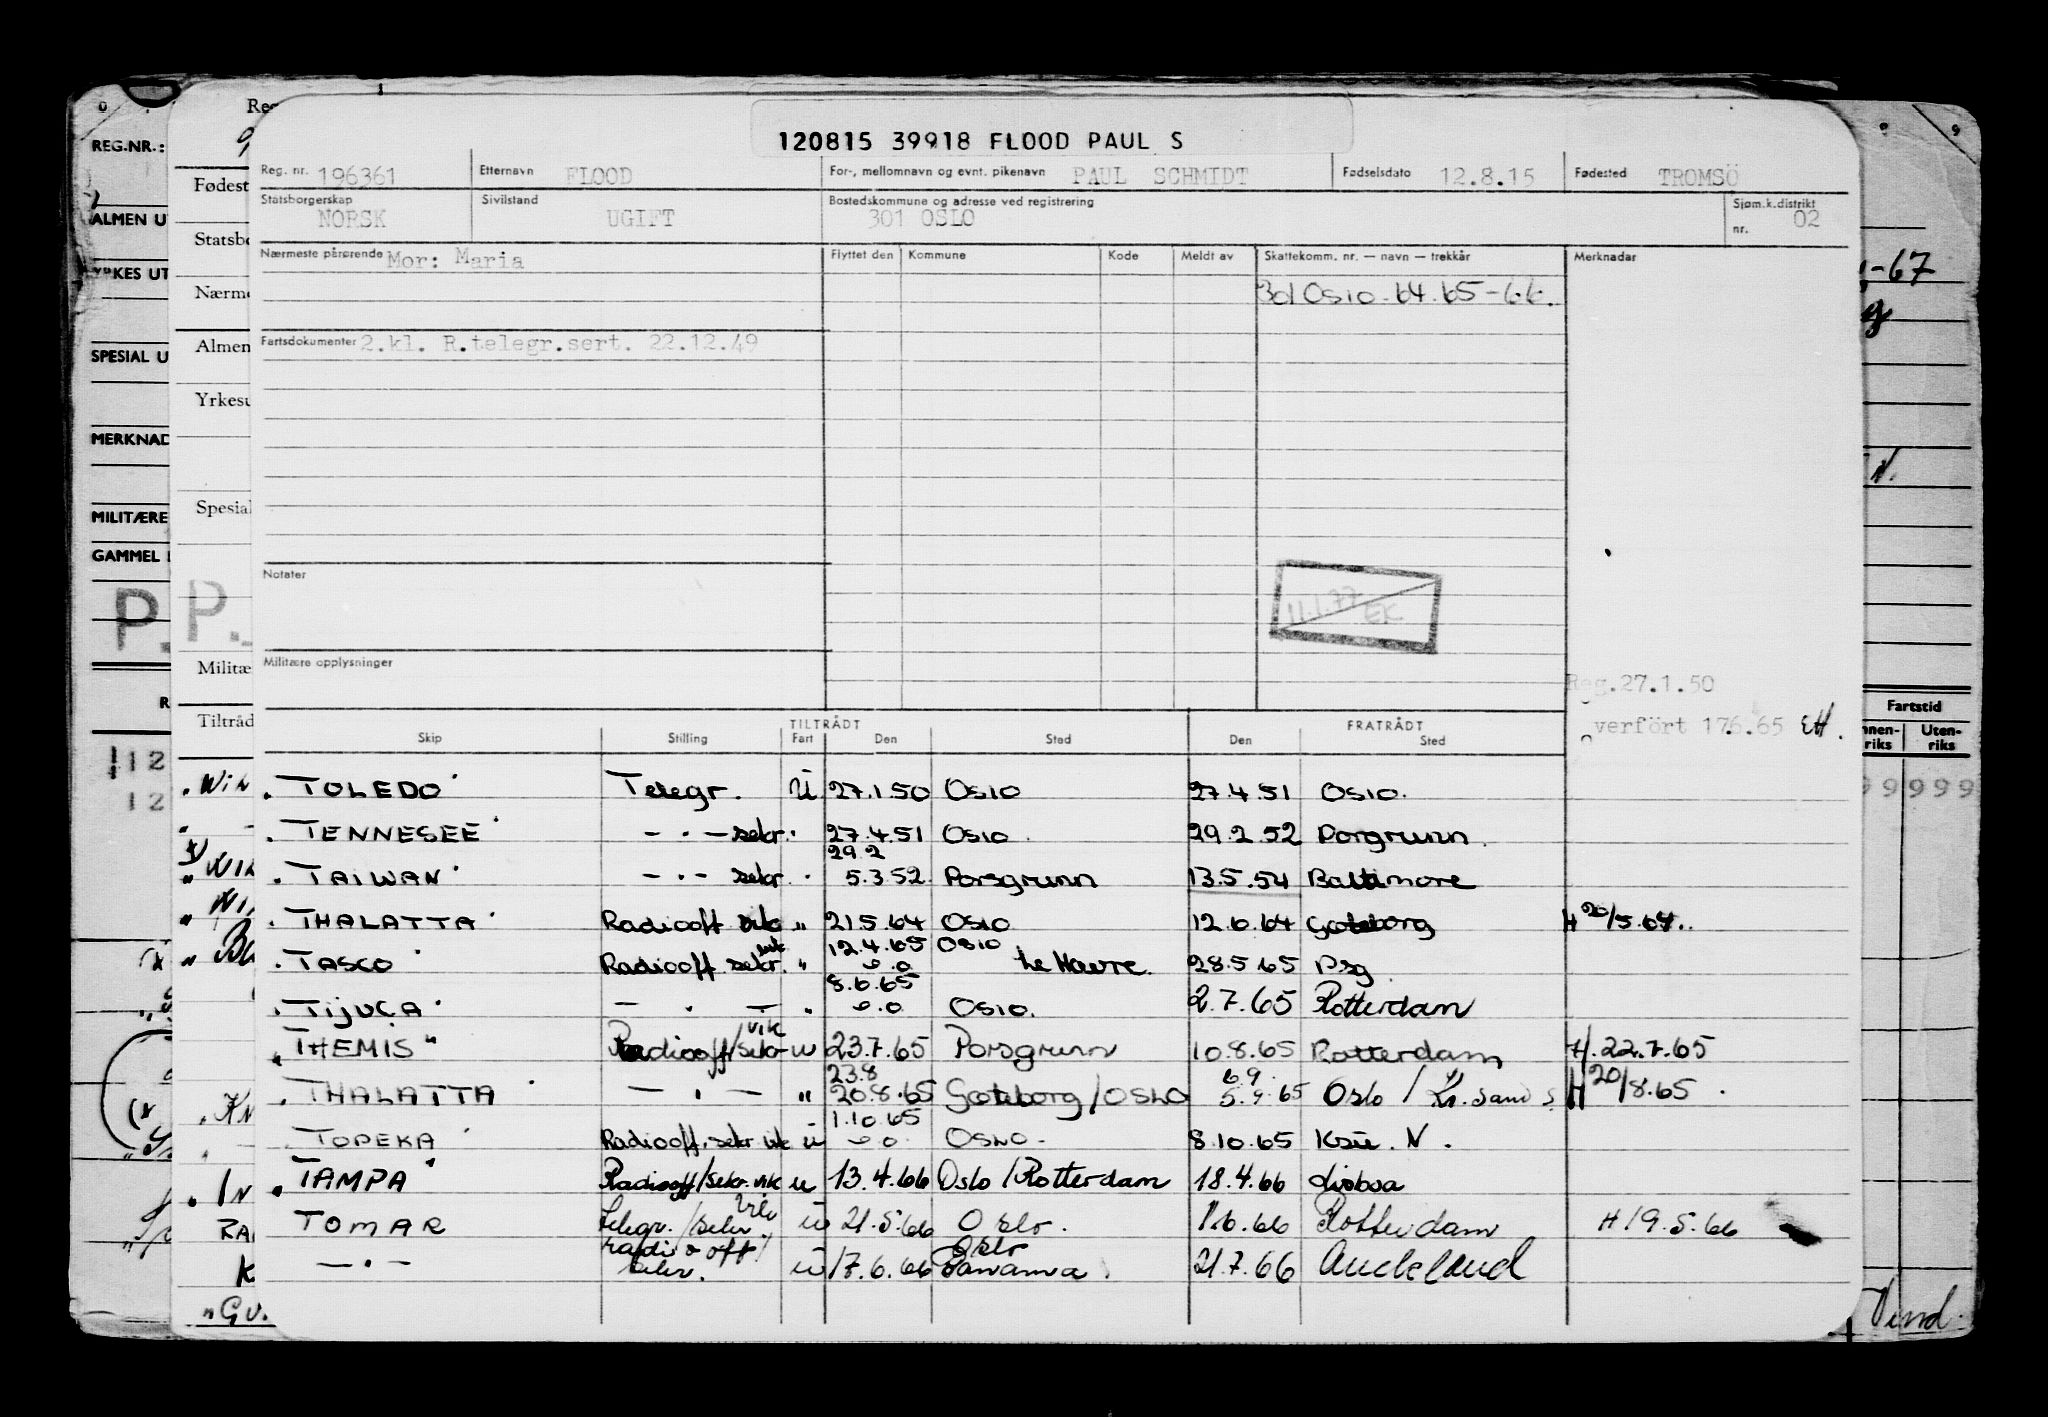 120815 39918 FLOOD PAUL S
Reg. nr. 196361 Etternavn FLOOD For-, mellomnavn og evnt. pikenavn PAUL SCHMIDT Fødselsdato 12.8.15 Fødested TROMSÖ
Statsborgerskap NORSK Sivilstand UGIFT Bostedskommune og adresse ved registrering 301 OSLO Sjøm.k.distrikt nr. 02
Nærmeste pårørende Mor: Maria Flyttet den Kommune Kode Meldt av Skattekomm. nr. — navn — trekkår Merknadar
301 Oslo - 64. 65 - 66.
Fartsdokumenter 2.kl. R.telegr.sert. 22.12.49
Notater
11.1.77 EK
Militære opplysninger
Reg.27.1.50
verfört 176.65 EH.
TILTRÅDT FRATRÅDT
Skip Stilling Fart Den Sted Den Sted
TOLEDO Telegr. U 27.1.50 Oslo 27.4.51 Oslo.
TENNESEE — · — sekr. 27.4.51 Oslo. 29.2.52 Porsgrunn.
29.2
TAIWAN — · — sekr. 5.3.52. Porsgrunn 13.5.54 Baltimore
THALATTA Radiooff sekr " 21.5.64 Oslo 12.6.64 Goteborg H 20/5.64.
12.4.65 Oslo
TASCO Radiooff sekr. " Le Havre. 28.5.65 Psg
8.6.65
TIJUCA — · — " Oslo. 2.7.65 Rotterdam
THEMIS Radiooff/sekr vik u 23.7.65 Porsgrunn 10.8.65 Rotterdam H. 22.7.65
23.8 6.9
THALATTA — · — " 20.8.65 Goteborg/OSLO 5.9.65 Oslo / Kr.sand S H 20/8.65
1.10.65
TOPEKA Radiooff. sekr. vik u Oslo. 8.10.65 Ksu. N.
TAMPA Radiooff/sekr. vik u 13.4.66 Oslo/Rotterdam 18.4.66 Lisboa
TOMAR Telegr./sekr. vik u 21.5.66 Oslo. 1.6.66 Rotterdam H 19.5.66
radio off/ Oslo
— · — sekr. u 17.6.66 Panama 21.7.66 Auckland
REG.NR.:
ALMEN U
YRKES UT
SPESIAL U
MERKNAD
MILITÆRE
GAMMEL
P.
Fødest
Statsbo
Nærme
Almen
Yrkesu
Spesial
P.
Militæ
Tiltråd
-67
N.
Fartstid
nnen-riks Uten-riks
99 999
112
12